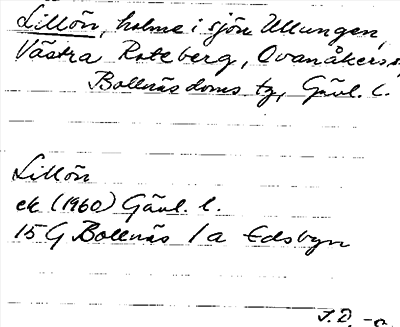 Lillön, holme i sjön Ullungen,
Västra Roteberg, Ovanåkers s,
Bollnäs doms tg, Gävl. l.
Lillön
ek (1960) Gävl. l.
15 G Bollnäs 1a Edsbyn